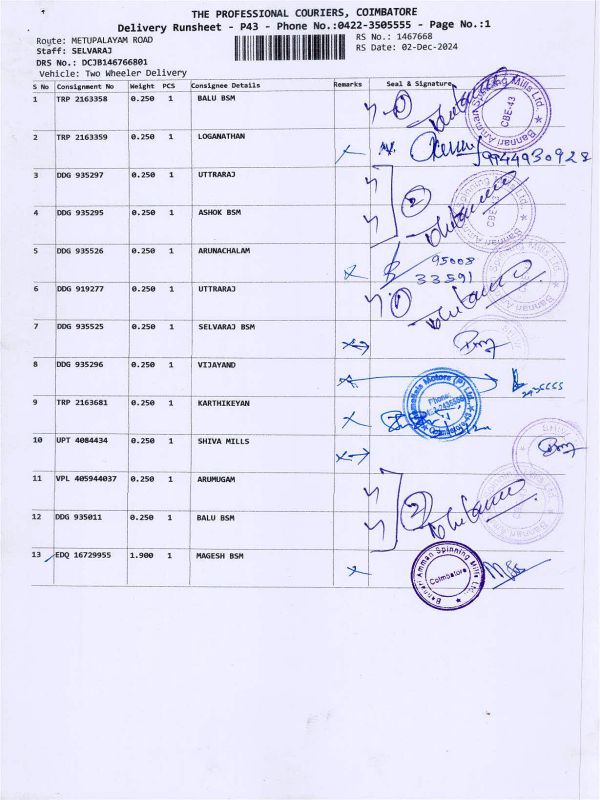 THE PROFESSIONAL COURIERS, COIMBATORE
Delivery Runsheet - P43 - Phone No.:0422-3505555 - Page No.:1
Route: METUPALAYAM ROAD
Staff: SELVARAJ
DRS No.: DCJB146766801
Vehicle: Two Wheeler Delivery
RS No.: 1467668
RS Date: 02-Dec-2024
S No Consignment No Weight PCS Consignee Details Remarks Seal & Signature
1 TRP 2163358 0.250 1 BALU BSM
Bannari Amman Spinning Mills Ltd., CBE-43
2 TRP 2163359 0.250 1 LOGANATHAN
9944930928
3 DDG 935297 0.250 1 UTTRARAJ
2
4 DDG 935295 0.250 1 ASHOK BSM
5 DDG 935526 0.250 1 ARUNACHALAM
95008
33591
6 DDG 919277 0.250 1 UTTRARAJ
1
7 DDG 935525 0.250 1 SELVARAJ BSM
8 DDG 935296 0.250 1 VIJAYAND
9 TRP 2163681 0.250 1 KARTHIKEYAN
10 UPT 4084434 0.250 1 SHIVA MILLS
11 VPL 405944037 0.250 1 ARUMUGAM
2
12 DDG 935011 0.250 1 BALU BSM
13 EDQ 16729955 1.900 1 MAGESH BSM
Bannari Amman Spinning Mills Ltd., Coimbatore